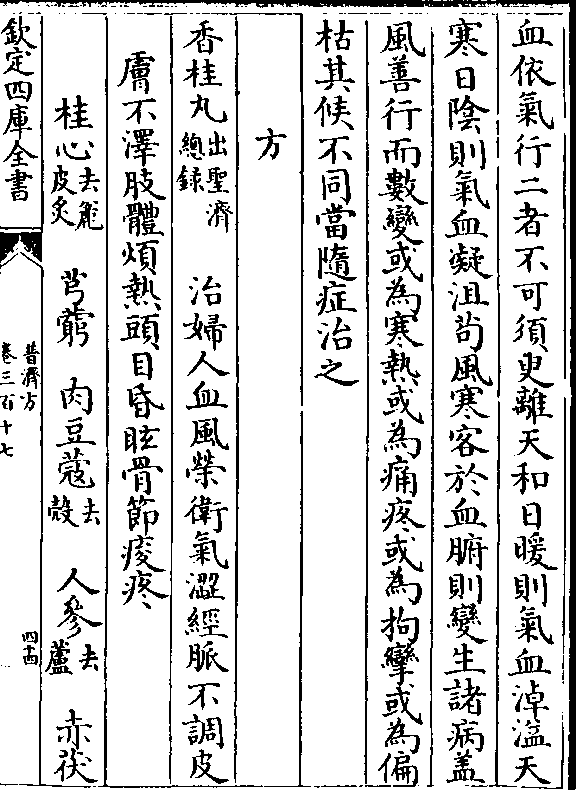 血依氣行二者不可須臾離天和日暖則氣血淖溢天
寒日陰則氣血凝沮茍風寒客於血腑則變生諸病蓋
風善行而數變或為寒熱或為痛疼或為拘攣或為偏
枯其候不同當隨症治之
方
香桂丸出聖濟總録 治婦人血風榮衛氣澀經脈不調皮
膚不澤肢體煩熱頭目昏眩骨節痠疼
桂心去麄皮炙 芎藭 肉豆蔻去殻 人參去蘆 赤茯
欽定四庫全書
普濟方
卷三百十七
四十四